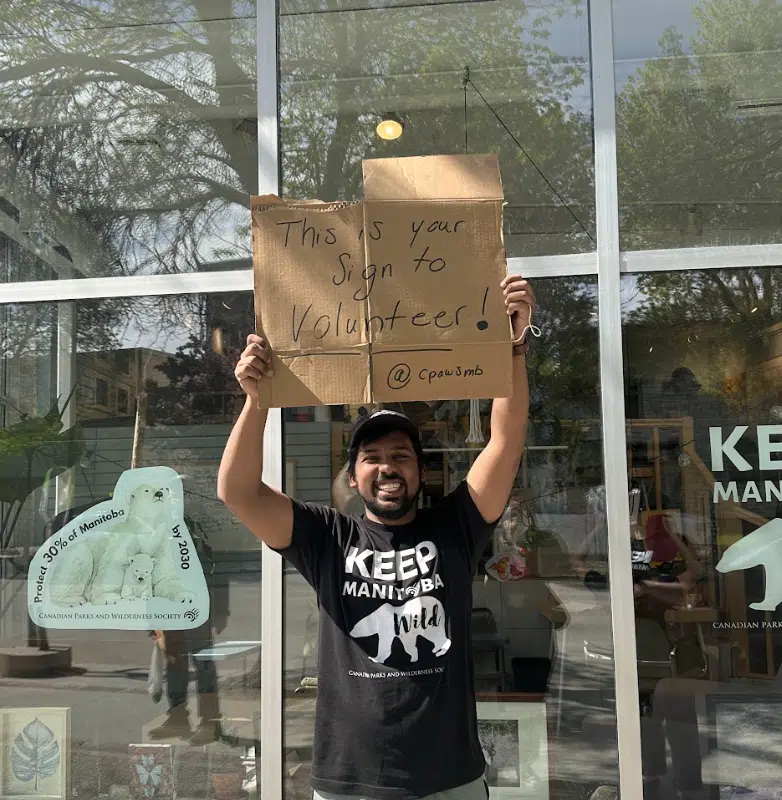 This is your
Sign to
Volunteer!
@cpawsmb
KEEP
MANITOBA
Wild
CANADIAN PARKS AND WILDERNESS SOCI
Protect 30% of Manitoba by 2030
CANADIAN PARKS AND WILDERNESS SOCIETY
KE
MAN
CANADIAN PARK